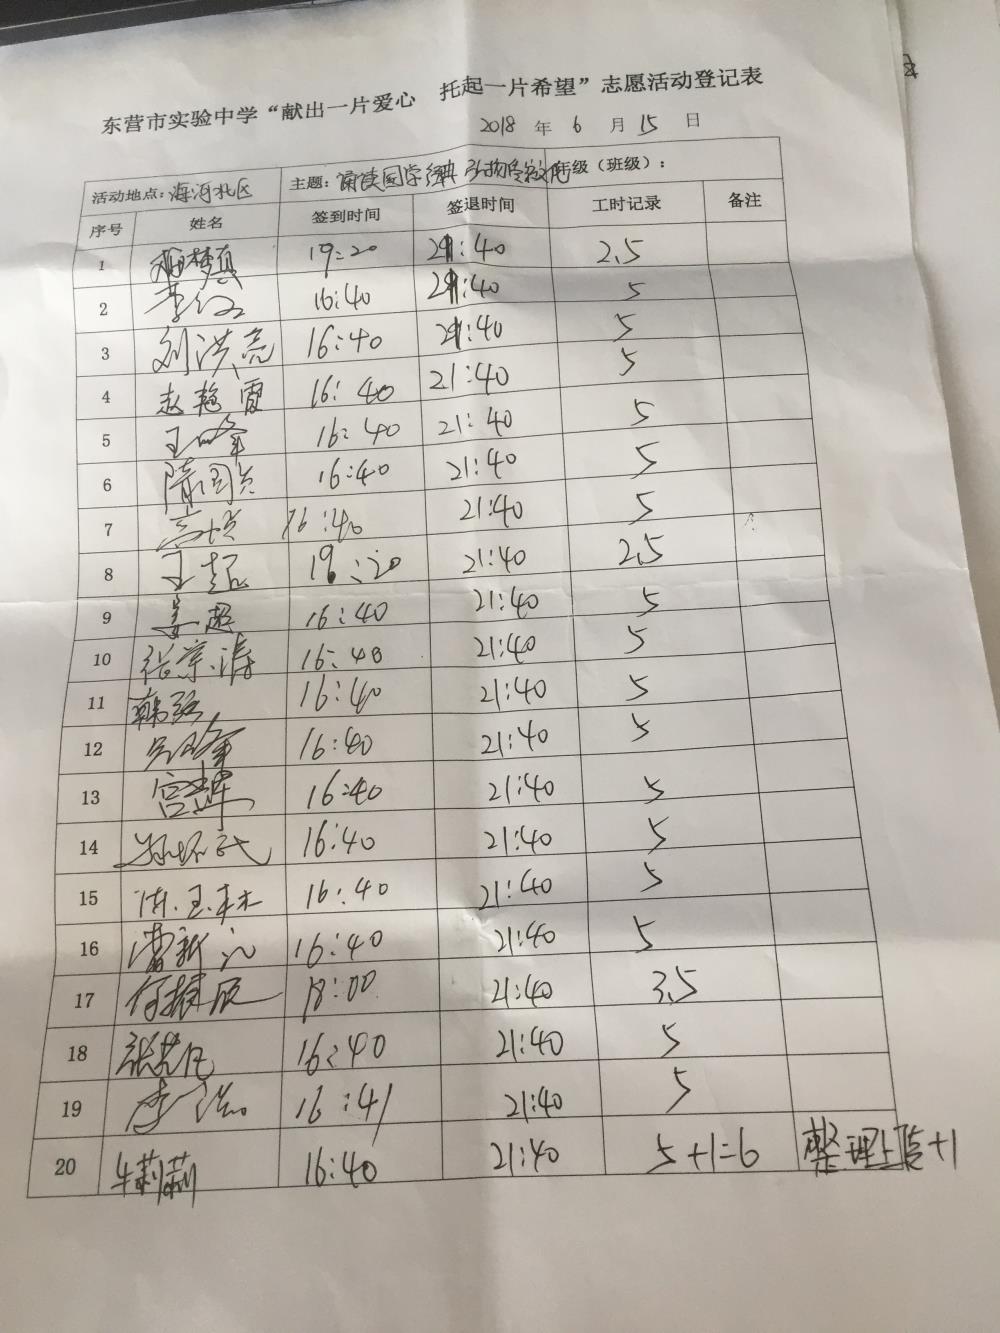 东营市实验中学“献出一片爱心 托起一片希望”志愿活动登记表
2018 年 6 月 15 日
活动地点: 海河北区 主题: 诵读国学经典 弘扬 年级（班级）:
序号 姓名 签到时间 签退时间 工时记录 备注
1 19:20 21:40 2.5
2 李红 16:40 21:40 5
3 刘洪亮 16:40 21:40 5
4 赵艳霞 16:40 21:40 5
5 16:40 21:40 5
6 隋国 16:40 21:40 5
7 16:40 21:40 5
8 王超 19:20 21:40 2.5
9 姜超 16:40 21:40 5
10 张景涛 16:40 21:40 5
11 韩强 16:40 21:40 5
12 16:40 21:40 5
13 宫 16:40 21:40 5
14 孙怀武 16:40 21:40 5
15 16:40 21:40 5
16 曹新 16:40 21:40 5
17 何振 18:00 21:40 3.5
18 张 16:40 21:40 5
19 李 16:41 21:40 5
20 牛莉莉 16:40 21:40 5+1=6 整理上传+1